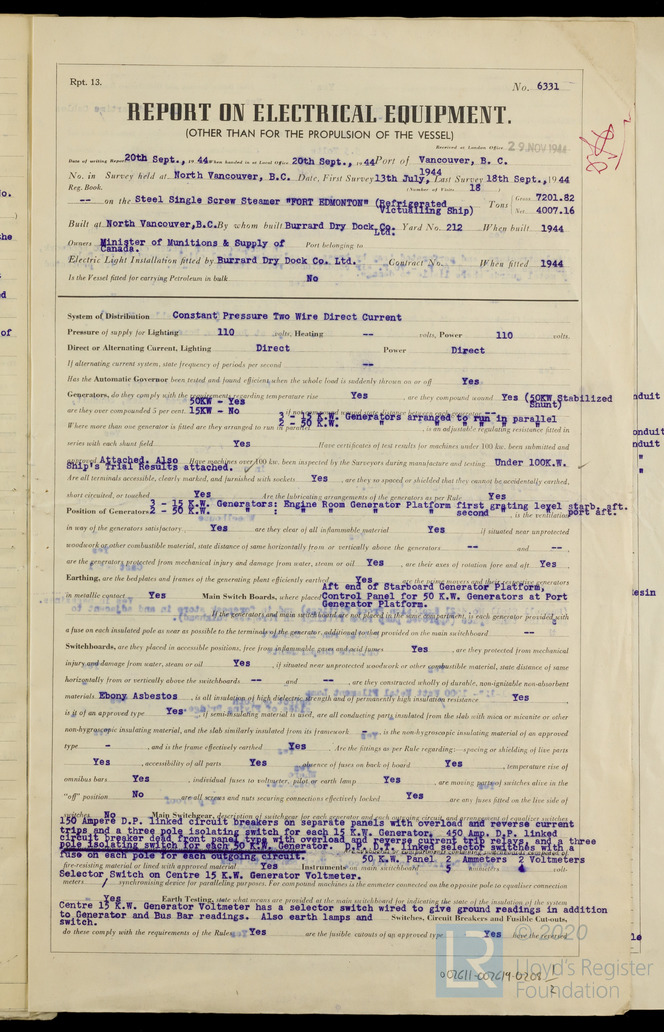 Rpt. 13.
No. 6331
REPORT ON ELECTRICAL EQUIPMENT.
(OTHER THAN FOR THE PROPULSION OF THE VESSEL)
Received at London Office 29 NOV 1944
Date of writing Report 20th Sept., 1944 When handed in at Local Office 20th Sept., 1944 Port of Vancouver, B. C.
No. in Survey held at North Vancouver, B.C. Date, First Survey 13th July, 1944 Last Survey 18th Sept., 1944
Reg. Book. (Number of Visits 18 )
-- on the Steel Single Screw Steamer "PORT EDMONTON" (Refrigerated Victualling Ship) Tons Gross 7201.82
Net 4007.16
Built at North Vancouver, B.C. By whom built Burrard Dry Dock Co. Ltd. Yard No. 212 When built 1944
Owners Minister of Munitions & Supply of Canada. Port belonging to
Electric Light Installation fitted by Burrard Dry Dock Co. Ltd. Contract No. When fitted 1944
Is the Vessel fitted for carrying Petroleum in bulk No
System of Distribution Constant Pressure Two Wire Direct Current
Pressure of supply for Lighting 110 volts, Heating -- volts, Power 110 volts.
Direct or Alternating Current, Lighting Direct Power Direct
If alternating current system, state frequency of periods per second --
Has the Automatic Governor been tested and found efficient when the whole load is suddenly thrown on or off Yes
Generators, do they comply with the requirements regarding temperature rise Yes , are they compound wound Yes (50KW Stabilized Shunt)
are they over compounded 5 per cent. 50KW - Yes 15KW - No , if not compound wound state distance between each generator --
Where more than one generator is fitted are they arranged to run in parallel 3 - 15 K.W. Generators arranged to run in parallel
2 - 50 K.W. " " " " " , is an adjustable regulating resistance fitted in
series with each shunt field Yes Have certificates of test results for machines under 100 kw. been submitted and
approved Attached. Also Ship's Trial Results attached. Have machines over 100 kw. been inspected by the Surveyors during manufacture and testing Under 100K.W.
Are all terminals accessible, clearly marked, and furnished with sockets Yes , are they so spaced or shielded that they cannot be accidentally earthed,
short circuited, or touched Yes Are the lubricating arrangements of the generators as per Rule Yes
Position of Generators 3 - 15 K.W. Generators: Engine Room Generator Platform first grating level starb. aft.
2 - 50 K.W. " : " " " " second " " port aft. , is the ventilation
in way of the generators satisfactory Yes , are they clear of all inflammable material Yes , if situated near unprotected
woodwork or other combustible material, state distance of same horizontally from or vertically above the generators -- and --,
are the generators protected from mechanical injury and damage from water, steam or oil Yes , are their axes of rotation fore and aft Yes
Earthing, are the bedplates and frames of the generating plant efficiently earthed Yes , are the prime movers and their respective generators
in metallic contact Yes Main Switch Boards, where placed Aft end of Starboard Generator Platform, Control Panel for 50 K.W. Generators at Port Generator Platform.
If the generators and main switchboard are not placed in the same compartment, is each generator provided with
a fuse on each insulated pole as near as possible to the terminals of the generator, additional to those provided on the main switchboard --
Switchboards, are they placed in accessible positions, free from inflammable gases and acid fumes Yes , are they protected from mechanical
injury and damage from water, steam or oil Yes , if situated near unprotected woodwork or other combustible material, state distance of same
horizontally from or vertically above the switchboards -- and --, are they constructed wholly of durable, non-ignitable non-absorbent
materials Ebony Asbestos , is all insulation of high dielectric strength and of permanently high insulation resistance Yes ,
is it of an approved type Yes , if semi-insulating material is used, are all conducting parts insulated from the slab with mica or micanite or other
non-hygroscopic insulating material, and the slab similarly insulated from its framework -, is the non-hygroscopic insulating material of an approved
type - , and is the frame effectively earthed Yes Are the fittings as per Rule regarding:—spacing or shielding of live parts
Yes , accessibility of all parts Yes , absence of fuses on back of board Yes , temperature rise of
omnibus bars Yes , individual fuses to voltmeter, pilot or earth lamp Yes , are moving parts of switches alive in the
"off" position No , are all screws and nuts securing connections effectively locked Yes , are any fuses fitted on the live side of
switches No Main Switchgear, description of switchgear for each generator and each outgoing circuit and arrangement of equalizer switches
150 Ampere D.P. linked circuit breakers on separate panels with overload and reverse current
trips and a three pole isolating switch for each 15 K.W. Generator. 450 Amp. D.P. linked
circuit breaker dead front panel type with overload and reverse current trip relays, and a three
pole isolating switch for each 50 K.W. Generator. D.P. D.T. linked selector switches with a
fuse on each pole for each outgoing circuit. 50 K.W. Panel 2 Ammeters 2 Voltmeters
fire-resisting material or lined with approved material Yes Instruments on main switchboard 5 ammeters 4 volt-
Selector Switch on Centre 15 K.W. Generator Voltmeter.
meters / synchronising device for paralleling purposes. For compound machines is the ammeter connected on the opposite pole to equaliser connection
Yes Earth Testing, state what means are provided at the main switchboard for indicating the state of the insulation of the system
Centre 15 K.W. Generator Voltmeter has a selector switch wired to give ground readings in addition
to Generator and Bus Bar readings. Also earth lamps and switch. Switches, Circuit Breakers and Fusible Cut-outs,
do these comply with the requirements of the Rules Yes , are the fusible cutouts of an approved type Yes
© 2020
LR Lloyd's Register Foundation
007611-007619-0208 1/2